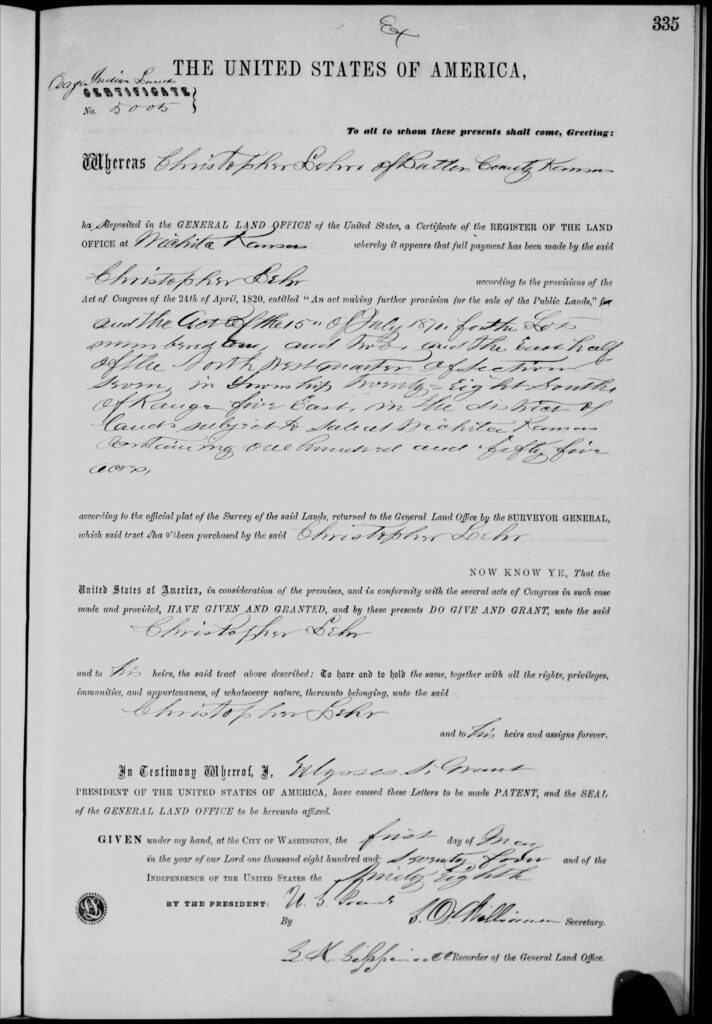 Ex
335
THE UNITED STATES OF AMERICA,
Osage Indian Lands
CERTIFICATE
No. 5005
To all to whom these presents shall come, Greeting:
Whereas Christopher Lehr of Butler County Kansas
ha s deposited in the GENERAL LAND OFFICE of the United States, a Certificate of the REGISTER OF THE LAND
OFFICE at Wichita Kansas whereby it appears that full payment has been made by the said
Christopher Lehr according to the provisions of the
Act of Congress of the 24th of April, 1820, entitled "An act making further provision for the sale of the Public Lands," for
and the Act of the 15" of July 1870. for the Lots
numbered one, and two, and the East half
of the North West quarter of Section
Seven, in Township twenty-Eight South,
of Range five East, in the district of
Lands subject to sale at Wichita Kansas
Containing one hundred and fifty five
acres,
according to the official plat of the Survey of the said Lands, returned to the General Land Office by the SURVEYOR GENERAL,
which said tract s ha ve been purchased by the said Christopher Lehr
NOW KNOW YE, That the
United States of America, in consideration of the premises, and in conformity with the several acts of Congress in such case
made and provided, HAVE GIVEN AND GRANTED, and by these presents DO GIVE AND GRANT, unto the said
Christopher Lehr
and to his heirs, the said tract above described: To have and to hold the same, together with all the rights, privileges,
immunities, and appurtenances, of whatsoever nature, thereunto belonging, unto the said
Christopher Lehr
and to his heirs and assigns forever.
In Testimony Whereof, I, Ulysses S. Grant
PRESIDENT OF THE UNITED STATES OF AMERICA, have caused these Letters to be made PATENT, and the SEAL
of the GENERAL LAND OFFICE to be hereunto affixed.
GIVEN under my hand, at the CITY OF WASHINGTON, the first day of May
in the year of our Lord one thousand eight hundred and seventy four and of the
INDEPENDENCE OF THE UNITED STATES the Ninety Eighth
BY THE PRESIDENT: U. S. Grant
By S. D. Williamson Secretary.
Recorder of the General Land Office.